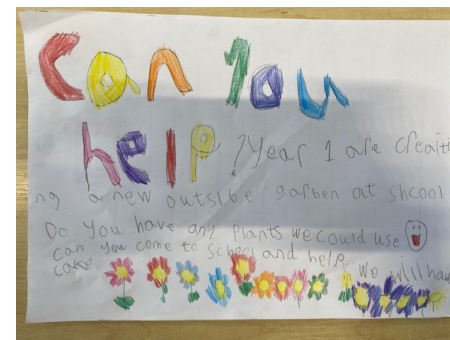 Can you
help? Year 1 are creaiti
ng a new outsibe garben at shcool
Do you have any plants we could use
can you come to school and help
we will hav
cake